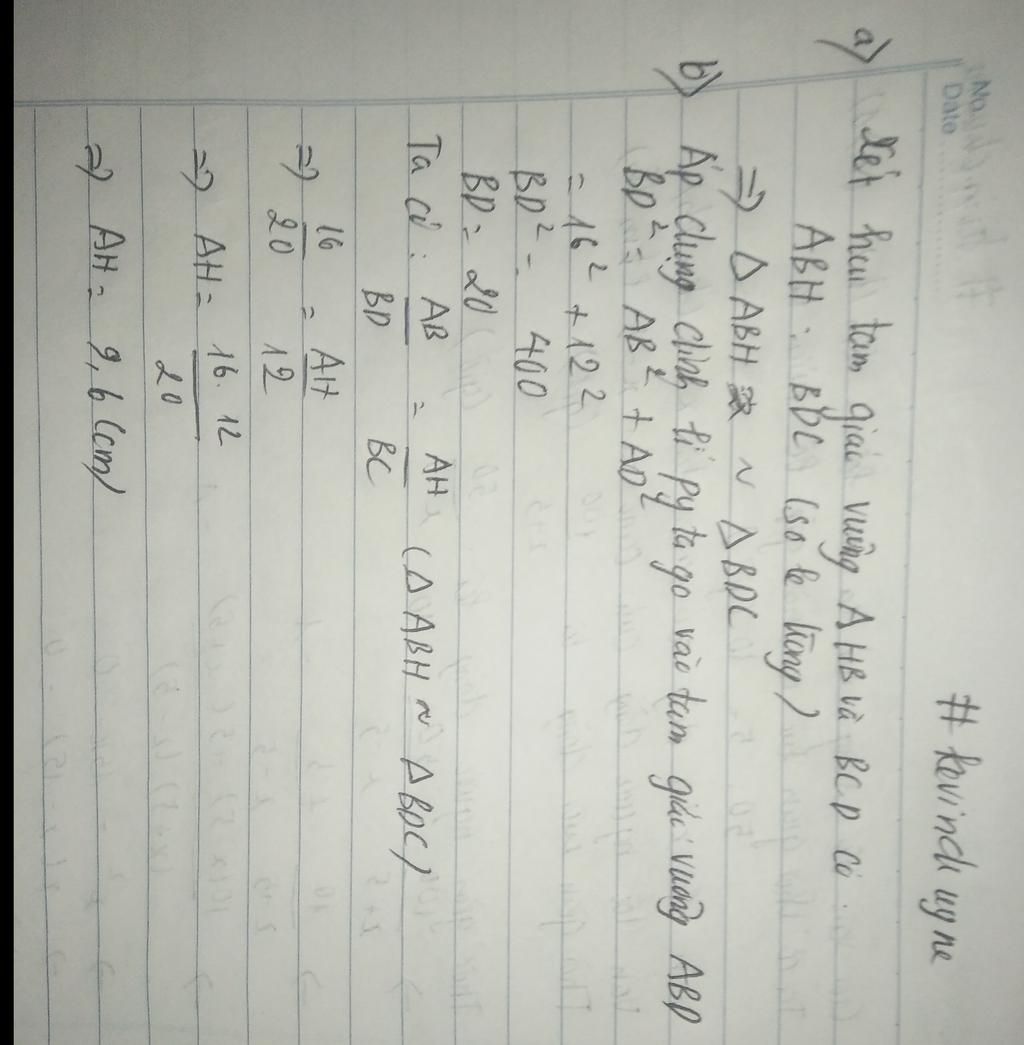 No.
Date
# kevinduyne
a) Xét hai tam giác vuông AHB và BCD có
ABH = BDC (so le trong)
=> Δ ABH ~ Δ BDC
b) Áp dụng định lí pytago vào tam giác vuông ABD
BD² = AB² + AD²
= 16² + 12²
BD² = 400
BD = 20
Ta có : AB/BD = AH/BC (Δ ABH ~ Δ BDC)
=> 16/20 = AH/12
=> AH = 16.12/20
=> AH = 9,6 (cm)